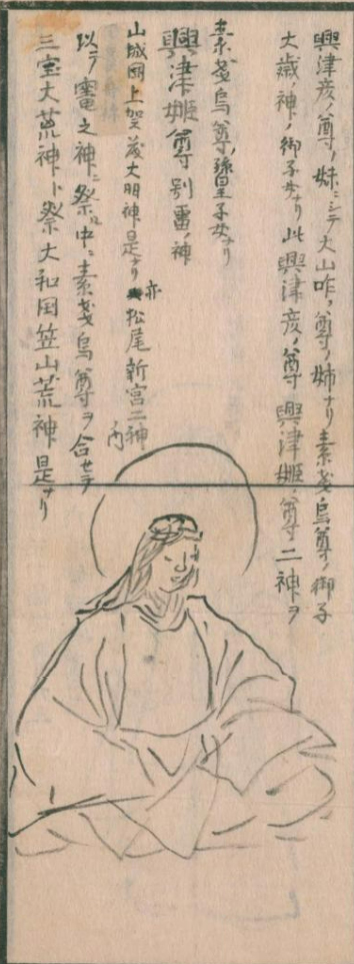 興津彦ノ尊ノ妹ニシテ大山咋ノ尊ノ姉ナリ素戔烏尊ノ御子
大歳ノ神ノ御子女ナリ此興津彦ノ尊興津姫ノ尊二神ヲ
素戔烏尊ノ孫皇子女ナリ
興津姫尊別雷ノ神
山城国上賀茂大明神是ナリ亦松尾新宮二神ノ内
以テ竃之神ニ祭ル中ニ素戔烏尊ヲ合セテ
三宝大荒神ト祭大和国笠山荒神是ナリ